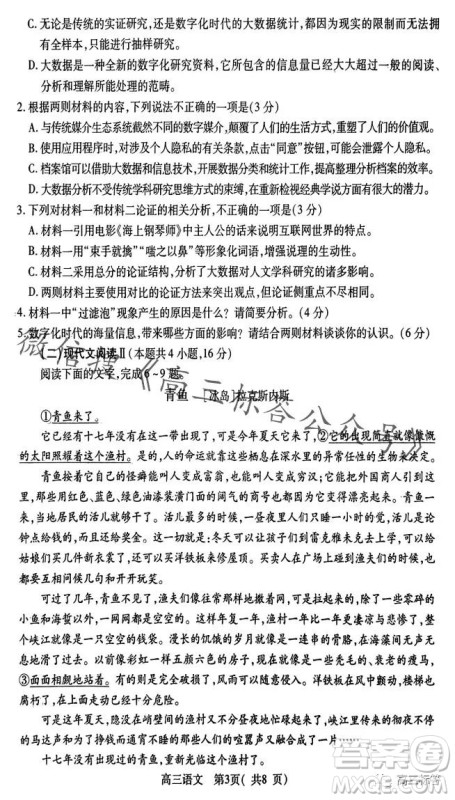 C. 无论是传统的实证研究，还是数字化时代的大数据统计，都因为现实的局限而无法拥
有全样本，只能进行抽样研究。
D. 大数据是一种全新的数字化研究资料，它所包含的信息量已经大大超过一般的阅读、
分析和理解所能处理的范畴。
2. 根据两则材料的内容，下列说法不正确的一项是(3分)
A. 与传统媒介生态系统截然不同的数字媒介，颠覆了人们的生活方式，重塑了人们的价值观。
B. 使用应用程序时，或许涉及个人隐私的有关条款，点击“同意”按钮，可能会泄露个人隐私。
C. 档案馆可以借助大数据和信息技术，开展数据分类和统计工作，提高整理分析档案的效率。
D. 大数据分析不受传统学科研究思维方法的束缚，在重新检视经典学说方面有很大的潜力。
3. 下列对材料一和材料二论证的相关分析，不正确的一项是(3分)
A. 材料一引用电影《海上钢琴师》中主人公的话来说明互联网世界的得失。
B. 材料一用“束手就擒”“嗤之以鼻”等形象化词语，增强说理的生动性。
C. 材料二采用总分的论证结构，分析了大数据对人文学科研究的诸多影响。
D. 两则材料从不同的对比论证方法来突出观点，但侧重点有所不同。
4. 材料一中“过滤泡”现象产生的原因是什么？请简要分析。(4分)
5. 数字化时代的海量信息，带来哪些方面的影响？请结合两则材料谈谈你的认识。(6分)
(二)现代文阅读Ⅱ(本题共4小题，16分)
阅读下面的文字，完成6~9题。
青鱼 [冰岛]拉克斯内斯
①青鱼来了。
它已经有十七年没有在这一带出现了，可是今年却又来了，②它的出现简直就像慷慨
的太阳照耀着这个渔村。是的，人的命运就这些栖息在深水里的异常任性的生物来决定。
青鱼按着它自己的怪癖能叫人变成富翁，也能叫人变成穷汉；它能把外国商人引到这
里，那些用红色、蓝色、绿色油漆装潢门面的阔气的商号也都因为它变得漂亮起来。青鱼一
来，当地居民的活儿就够干了，孩子们得到的是一小时又一小时的觉，活儿是论
钟点给钱的，而且还给奖金。这一切真是太妙了！孩子们可以得到雷克雅未克去上学，可以给
姑娘们买几件新衣裳了，还可以买洋铁板来修屋顶。买卖人在广场上碰到渔夫们的时候，
都要互相问候几句并开开玩笑。
可过了几年，青鱼不见了，渔夫们像往常那样地撒着网，可是除了一些零碎的
小鱼和海草以外，一网网都是空空的。这一切变得叫人再也没有比这更悲惨了，整个
峡江就成了一个空空的坟墓。漫长的饥饿的岁月就像是一连串的骨骼，在海藻间无声无
息地消失了。小渔村里像彩虹一样五颜六色的房子，现在也就像是一些秃毛的、衰老的瘦马，
③面面相觑地站着。有的则是完全损坏了，风雨可以随意侵入。洋铁板在风中颤动，楼梯也
都腐朽了，人走上去已经十分危险。
可是一朝一夕之间，没想到这个悄静的渔村突然昼夜地忙碌起来了，峡江里传来彻夜不
停的马达声和来自四面八方的人们的喧嚣声又叫人听见了……
十七年没有出现的青鱼，重新光临这个渔村了。
高三语文 第3页(共8页)
微信搜《高三标答公众号》
高三标答